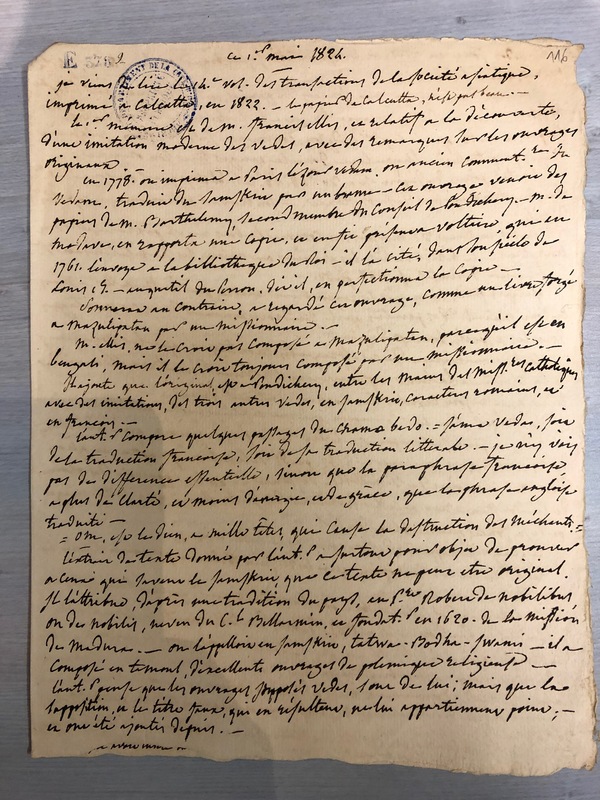 E 3792
116
ce 1.er mai 1824.
je viens de lire le 14.e vol. des transactions de la société asiatique,
imprimé a Calcutta, en 1822. — le papier de Calcutta, n'est pas beau. —
le 1.er mémoire est de m. francis ellis, et relatif a la découverte,
d'une imitation moderne des vedes, avec des remarques sur les ouvrages
originaux
en 1778. on imprima a Paris l'ezour vedam, ou ancien comment.re du
vedam, traduit du samskrit par un brame — cet ouvrage venoit des
papiers de m. Barthelemy, second membre du Conseil de Pondichery. — m. de
modave, en rapporta une copie, et en fit présent a voltaire, qui en
1761. l'envoya a la bibliotheque du Roi — il l'a cité, dans son siècle de
Louis 15. — anquetil du Perron, dit il, en perfectionna la copie. —
Sonnerat au contraire, a regardé cet ouvrage, comme un livre forgé
a mazulipatan par un missionnaire. —
m. ellis, ne le croit pas composé a mazulipatan, parce qu'il est en
bengali, mais il le croit toujours composé par un missionnaire. —
Il ajoute que l'original, est a Pondichery, entre les mains des miss.res catholiques
avec des imitations, des trois autres vedes, en samskrit, caracteres romains, et
en françois. —
l'aut.r compare quelques passages du chamo bedo. = sama vedas, soit
de la traduction françoise, soit de sa traduction litterale. — je n'y vois
pas de difference essentielle, sinon que la paraphrase françoise
a plus de clarté, et moins d'énergie, et de grâce, que la phrase angloise
traduite —
= om, est le dieu, a mille têtes, qui cause la destruction des méchants. =
l'extrait du texte donné par l'aut.r a surtout pour objet de prouver
a ceux qui savent le samskrit, que ce texte ne peut etre original.
Il l'attribue, d'après une tradition du pays, au P. Robert de nobilibus
ou de nobilis, neveu du C.l Bellarmin, et fondat.r en 1620. de la mission
de Madura. — on l'appelloit en samskrit, tatwa-Bodha-swami — il a
composé en tamoul, d'excellents ouvrages de polemique religieuse —
l'aut.r pense que les ouvrages supposés vedes, sont de lui; mais que la
supposition, et le titre faux, qui en résultent, ne lui appartiennent point; —
et ont été ajoutés depuis. —